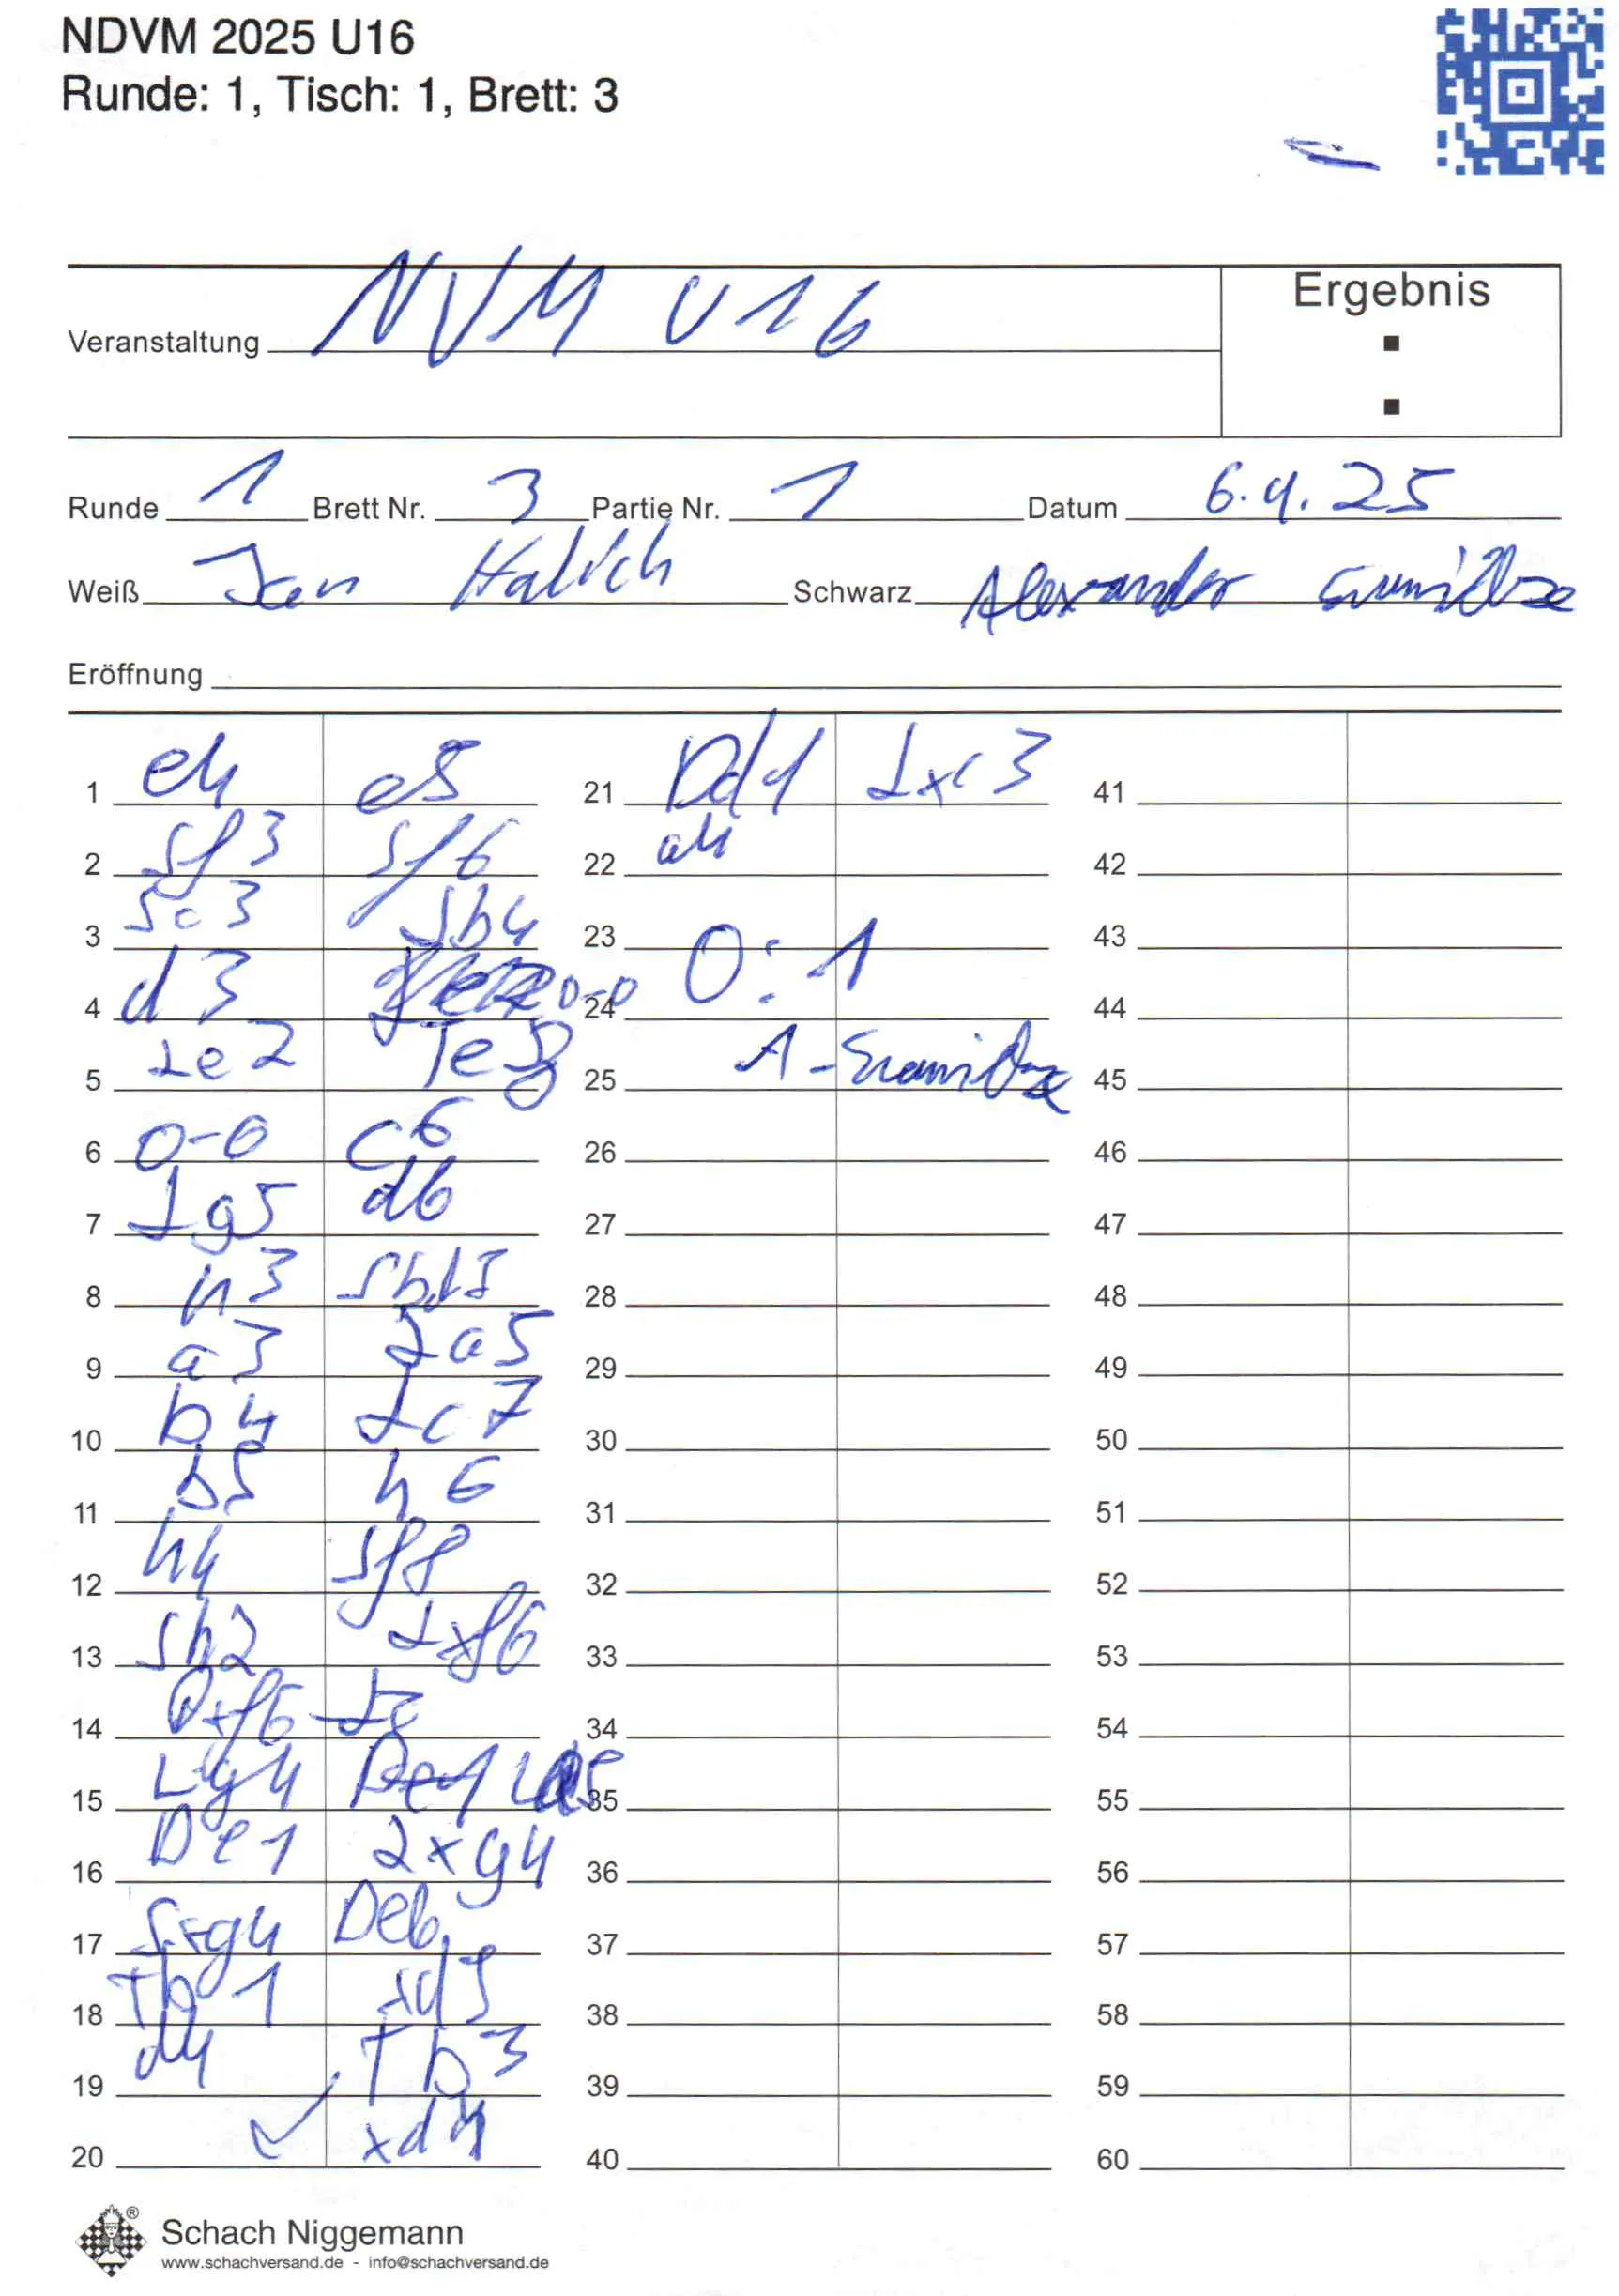 NDVM 2025 U16
Runde: 1, Tisch: 1, Brett: 3
Ergebnis
Veranstaltung NVM U16
Runde 1 Brett Nr. 3 Partie Nr. 1 Datum 6.4.25
Weiß Jan Schwarz Alexander
Eröffnung
1 e4 e5 21 Dd1 Lxc3 41
2 Sf3 Sf6 22 a4 42
3 Sc3 Lb4 23 0:1 43
4 d3 0-0 24 44
5 Le2 Te8 25 A- 45
6 0-0 c6 26 46
7 Lg5 d6 27 47
8 h3 Sbd7 28 48
9 a3 La5 29 49
10 b4 Lc7 30 50
11 b5 h6 31 51
12 h4 Sf8 32 52
13 Sh2 xf6 33 53
14 xf6 34 54
15 Lg4 35 55
16 De1 Lxg4 36 56
17 Sxg4 De6 37 57
18 Tb1 xd5 38 58
19 d4 Tb3 39 59
20 xd4 40 60
Schach Niggemann
www.schachversand.de - info@schachversand.de